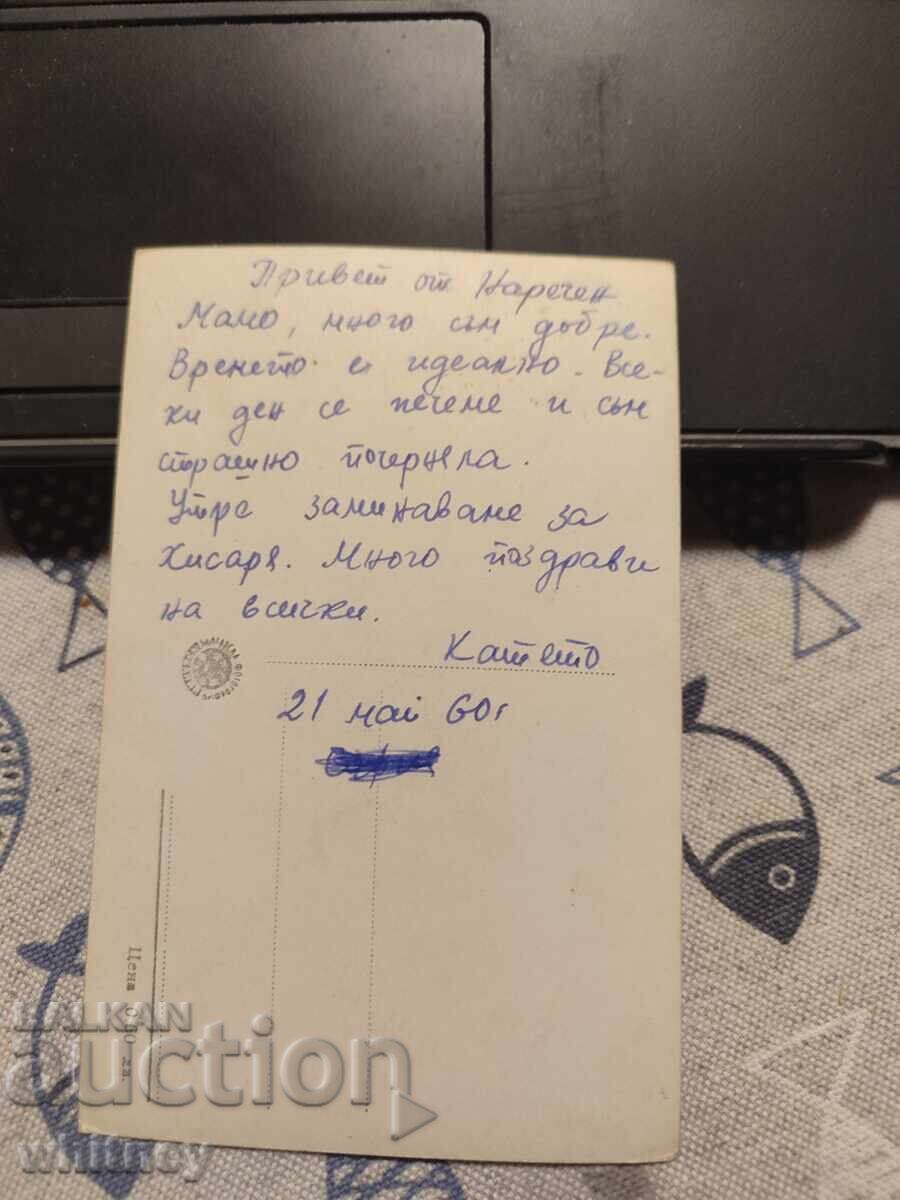 Привет от Наречен
Мамо, много съм добре.
Времето е идеално. Все-
ки ден се печеме и съм
страшно почерняла.
Утре заминаваме за
Хисаря. Много поздрави
на всички.
Катето
21 май 60г
Цена 0.40 лв.
BALKAN
auction
whitney